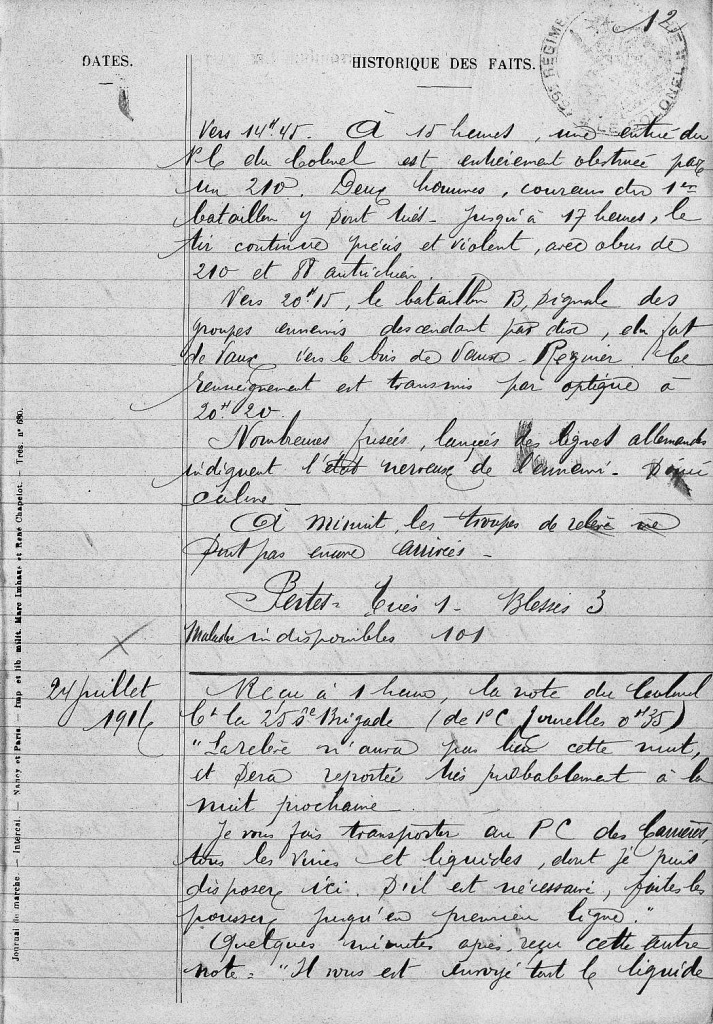 12
DATES.
HISTORIQUE DES FAITS.
Vers 14h45. À 15 heures, une entrée du
P.C. du Colonel est entièrement obstruée par
un 210. Deux hommes, coureurs du 1er
bataillon y sont tués. Jusqu'à 17 heures, le
tir continue précis et violent, avec obus de
210 et 88 autrichien.
Vers 20h15, le bataillon B, signale des
groupes ennemis descendant par dix, du fort
de Vaux vers le bois de Vaux-Régnier. Ce
renseignement est transmis par optique à
20h20.
Nombreuses fusées, lancées des lignes allemandes
indiquent l'état nerveux de l'ennemi.
calme
À minuit, les troupes de relève ne
sont pas encore arrivées -
Pertes - Tués 1 - Blessés 3
Malades indisponibles 101
24 juillet
1916
Reçu à 1 heure, la note du Colonel
Ct la 255e Brigade (de PC Fourelles 0h35)
"La relève n'aura pas lieu cette nuit,
et sera reportée très probablement à la
nuit prochaine.
Je vous fais transporter au PC des Carrières,
tous les vivres et liquides, dont je puis
disposer ici. S'il est nécessaire, faites les
pousser jusqu'en première ligne."
Quelques minutes après, reçu cette autre
note = "Il vous est envoyé tout le liquide
Journal de marche. — Intercal. — Nancy et Paris. — Imp et lib. milit. Marc Imhaus et René Chapelot. — Trés. n° 680.